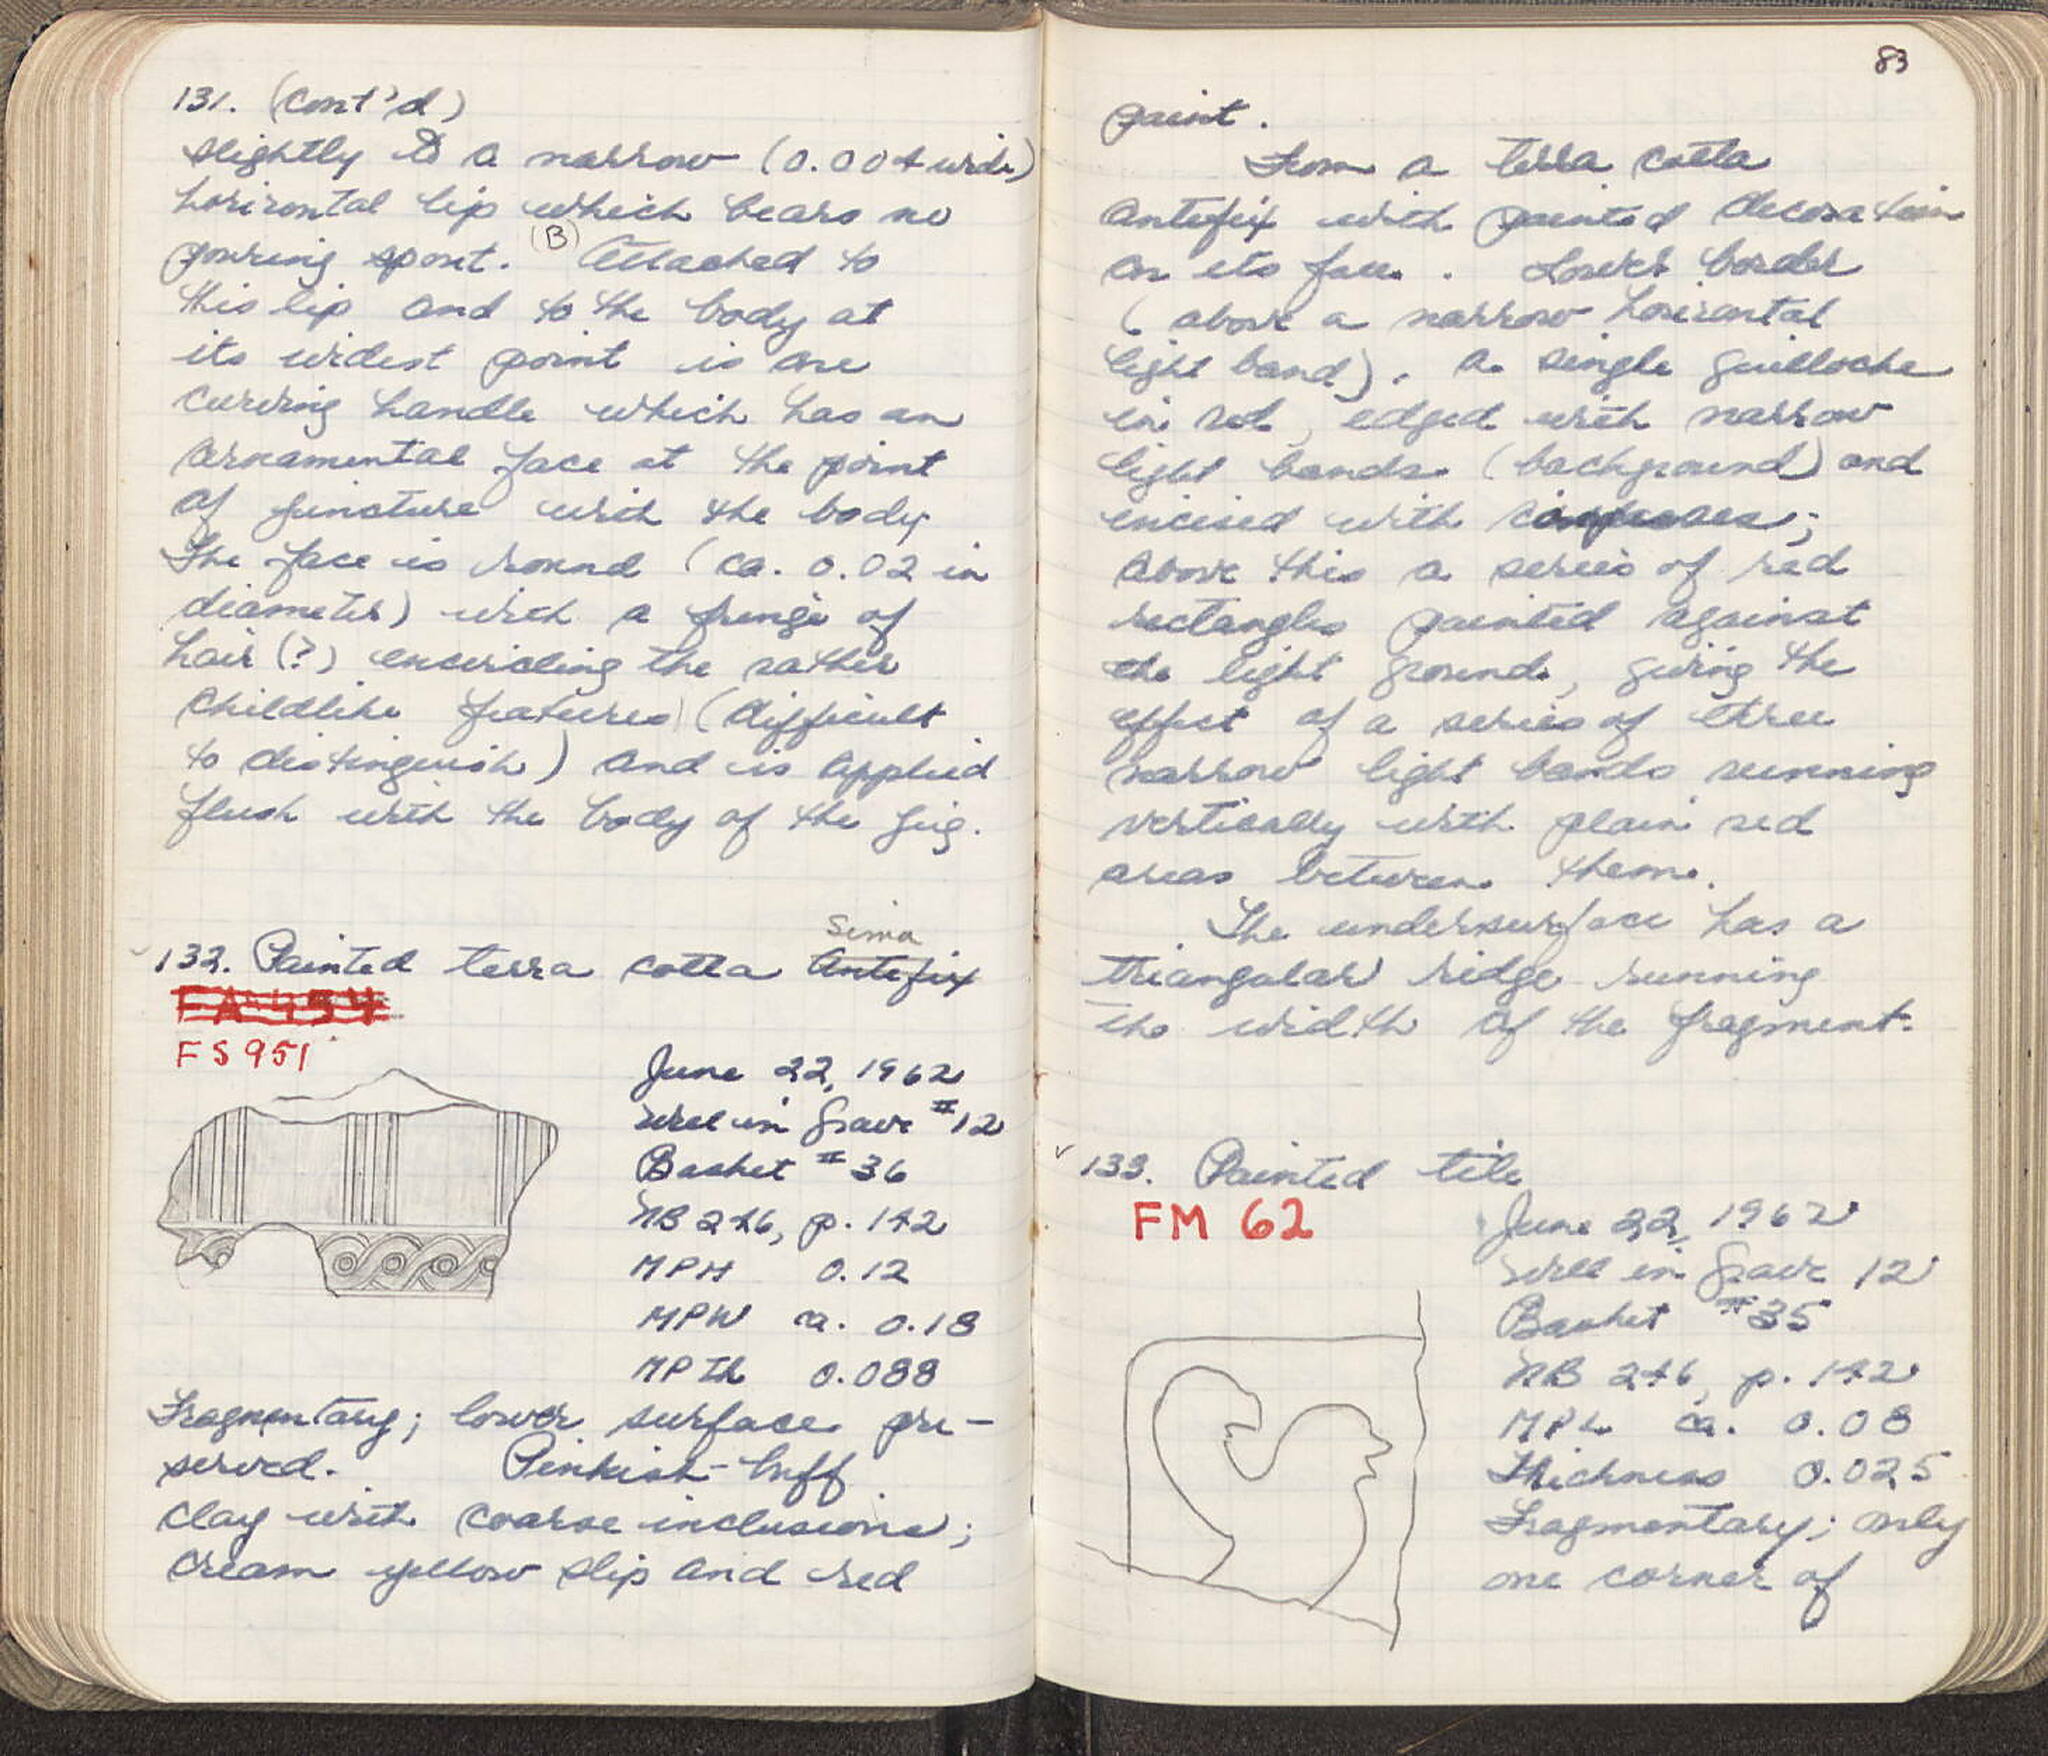 131. (cont'd)
slightly to a narrow (0.004 wide)
horizontal lip which bears no
pouring spout. (B) Attached to
this lip and to the body at
its widest point is one
curving handle which has an
ornamental face at the point
of juncture with the body.
The face is round (ca. 0.02 in
diameter) with a fringe of
hair (?) encircling the rather
childlike features (difficult
to distinguish) and is applied
flush with the body of the jug.
Sima
132. Painted terra cotta Antefix
FA 454
FS 951
June 22, 1962
Well in Grave #12
Basket #36
NB 246, p. 142
MPH 0.12
MPW ca. 0.18
MPTh 0.088
Fragmentary; lower surface pre-
served. Pinkish-buff
clay with coarse inclusions;
cream yellow slip and red
83
paint.
From a terra cotta
antefix with painted decoration
on its face. Lower border
(above a narrow horizontal
light band). A single guilloche
in red, edged with narrow
light bands (background) and
incised with compasses;
above this a series of red
rectangles painted against
the light ground, giving the
effect of a series of three
narrow light bands running
vertically with plain red
areas between them.
The undersurface has a
triangular ridge running
the width of the fragment.
133. Painted tile
FM 62
June 22, 1962
Well in Grave 12
Basket #35
NB 246, p. 142
MPL ca. 0.08
Thickness 0.025
Fragmentary; only
one corner of